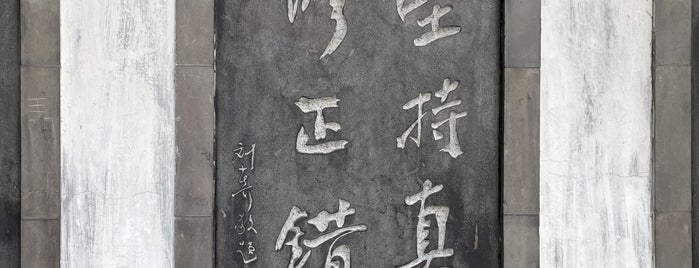 坚持真
修正错
刘奇敬题